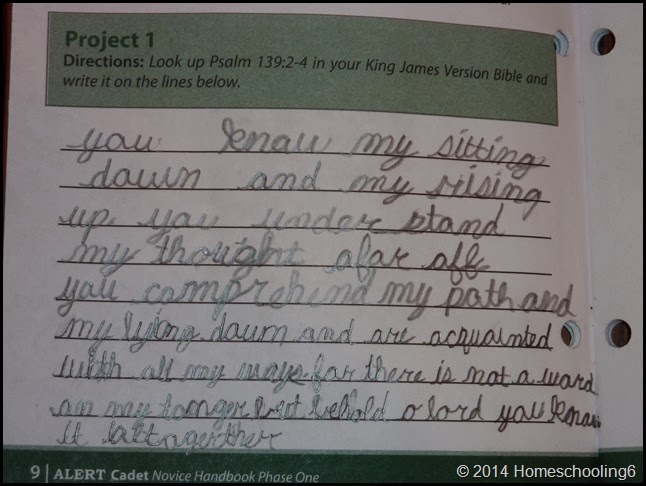 Project 1
Directions: Look up Psalm 139:2-4 in your King James Version Bible and
write it on the lines below.
you know my sitting
down and my rising
up you under stand
my thought afar off
you comprehend my path and
my lying down and are acquainted
with all my ways for there is not a word
on my tonger but behold o lord you know
it altagerther
9 | ALERT Cadet Novice Handbook Phase One
© 2014 Homeschooling6